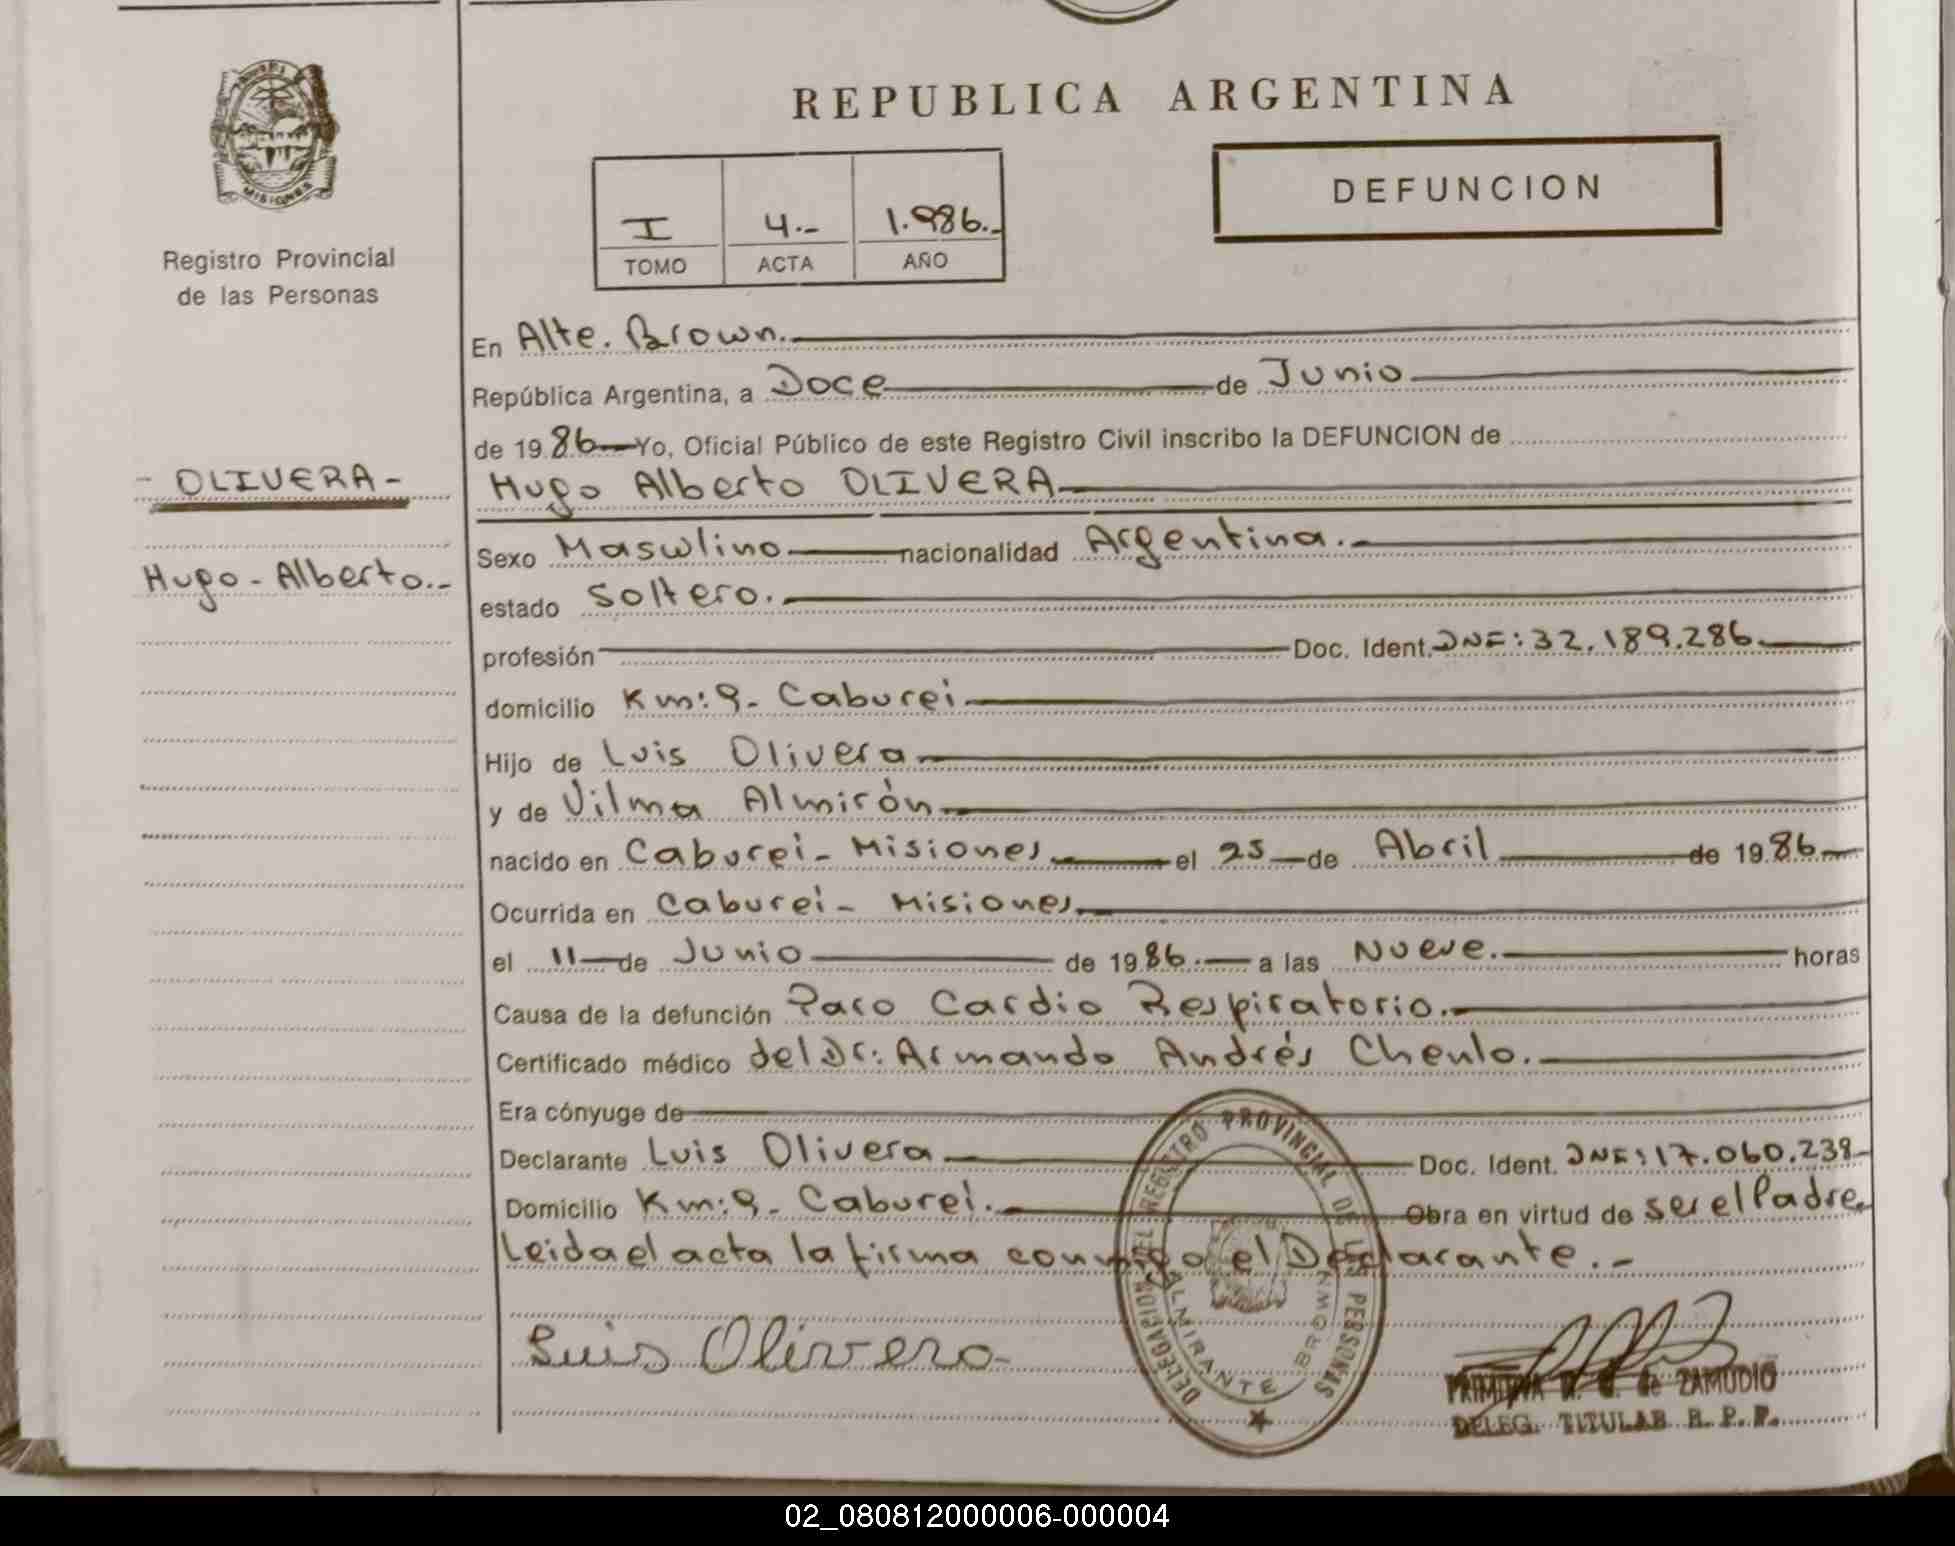 REPUBLICA ARGENTINA
MISIONES
Registro Provincial
de las Personas
I 4.- 1.986.-
TOMO ACTA AÑO
DEFUNCION
- OLIVERA -
Hugo - Alberto.-
En Alte. Brown.
República Argentina, a Doce de Junio
de 1986 Yo, Oficial Público de este Registro Civil inscribo la DEFUNCION de
Hugo Alberto OLIVERA
Sexo Masculino nacionalidad Argentina.
estado Soltero.
profesión Doc. Ident. DNI: 32.189.286.
domicilio Km: 9- Caburei
Hijo de Luis Olivera
y de Vilma Almirón
nacido en Caburei- Misiones el 25 de Abril de 1986
Ocurrida en Caburei- Misiones
el 11 de Junio de 1986. a las Nueve. horas
Causa de la defunción Paro Cardio Respiratorio.
Certificado médico del Dr: Armando Andrés Chenlo.
Era cónyuge de
Declarante Luis Olivera Doc. Ident. DNI: 17.060.238
Domicilio Km: 9- Caburei. Obra en virtud de ser el Padre.
Leida el acta la firma conmigo el Declarante.-
DELEGACION DEL REGISTRO PROVINCIAL DE LAS PERSONAS
ALMIRANTE BROWN
Luis Olivera
PRIMITIVA de ZAMUDIO
DELEG. TITULAR R. P. P.
02_080812000006-000004